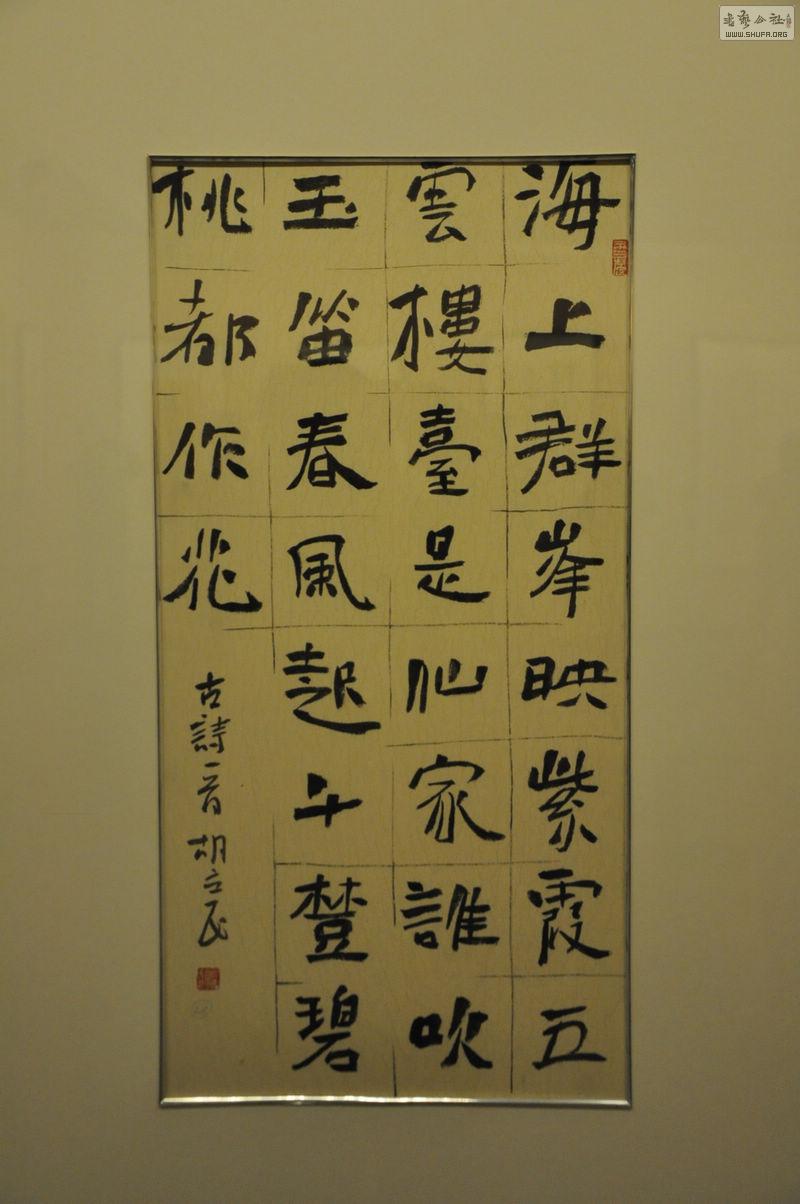 海上群峯映紫霞五
雲樓臺是仙家誰吹
玉笛春風起千樹碧
桃都作花
古詩一首 胡立民
書藝公社
WWW.SHUFA.ORG